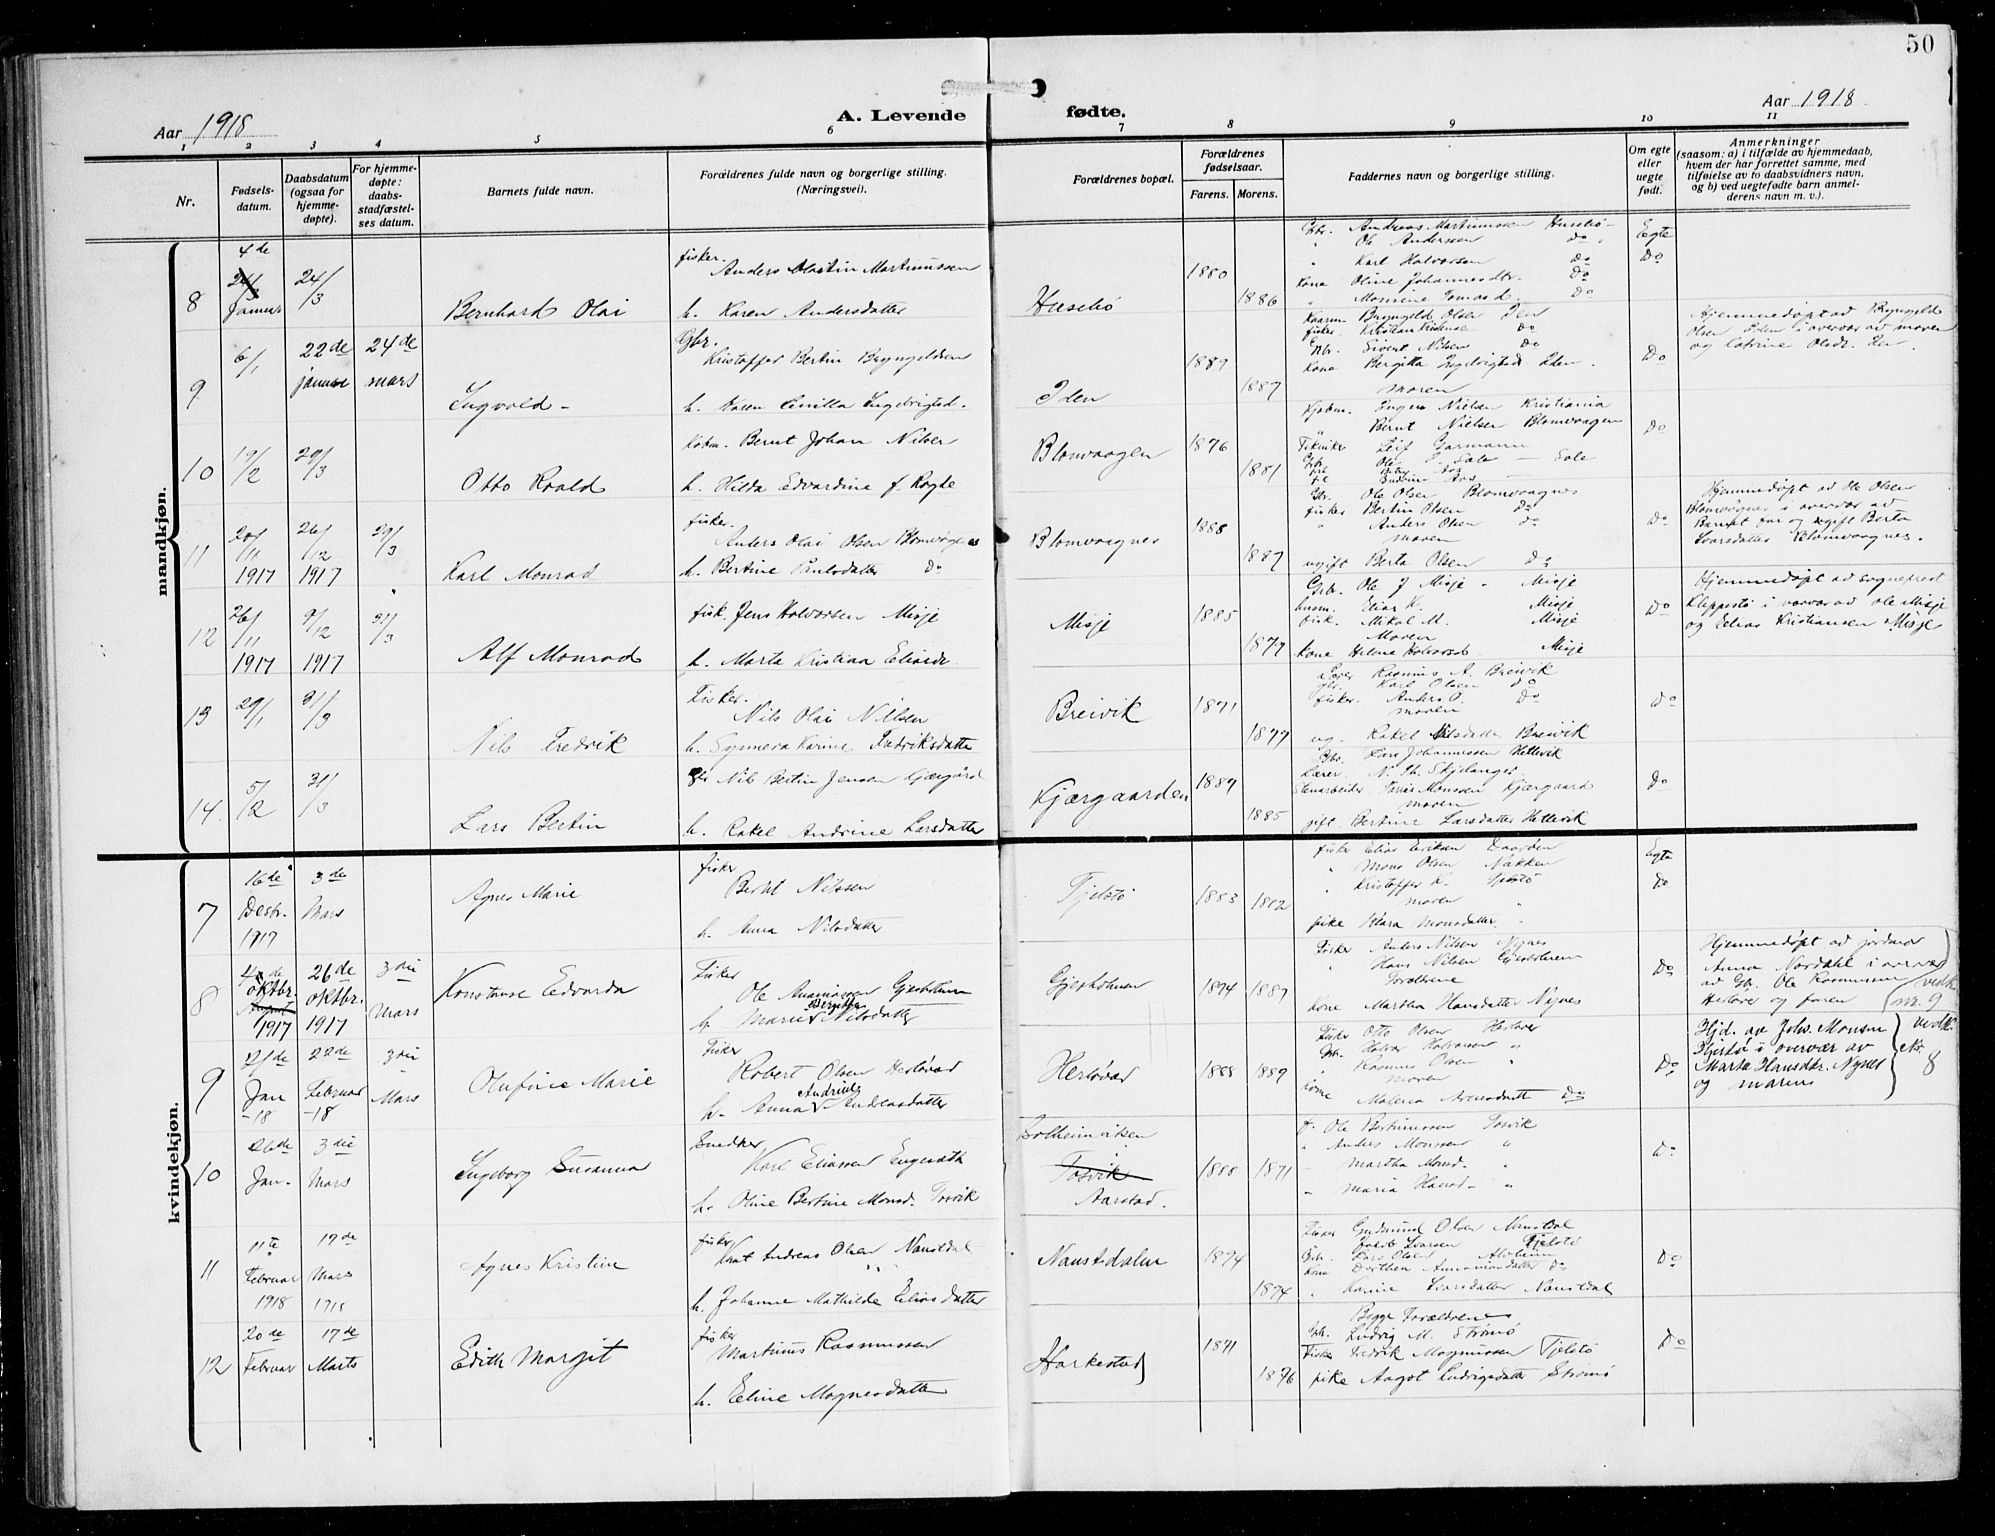 50
Aar 1918
A. Levende fødte.
Aar 1918
1 2 3 4 5 6 7 8 9 10 11
Nr.
Fødsels-
datum.
Daabsdatum
(ogsaa for
hjemme-
døpte).
For hjemme-
døpte:
daabs-
stadfæstel-
ses datum.
Barnets fulde navn.
Forældrenes fulde navn og borgerlige stilling.
(Næringsvei).
Forældrenes bopæl.
Forældrenes
fødselsaar.
Farens. Morens.
Faddernes navn og borgerlige stilling.
Om egte
eller
uegte
født.
Anmerkninger
(saasom: a) i tilfælde av hjemmedaab,
hvem der har forrettet samme, med
tilføielse av to daabsvidners navn,
og b) ved uegtefødte barn anmel-
derens navn m. v.).
mandkjøn.
8
4de
Januar
24/3
Bernhard Olai
fisker.
Anders Martin Martinussen
h. Karen Andersdatter
Husebø
1880
1886
Gbr. Andreas Martinussen Husebø
" Ole Andersen Do
" Karl Halvorsen Do
Kone Oline Johannesdtr. Do
" Monsine Tomasd. Do
Egte
Do
9
6/1
22de
januar
24de
mars
Ingvald
Gbr.
Kristoffer Bertin Bryngeldsen
h. Karen Ingebrigtsd.
Iden
1889
1887
Bryngeld Olsen Iden
fisker Kristian Do
Gbr. Sivert Nilsen Do
Kone Bergitta Iden
moren
Do
Hjemmedøpt ad Bryngeld
Olsen Iden i overvær ad moren
og Catrine Olsdr. Iden
10
19/2
29/3
Otto Roald
Kobm. Bernt Johan Nilsen
h. Hilda Edvardine f. Rogde
Blomvaagen
1876
1881
Kjøbm. Nielsen Kristiania
" Bernt Nielsen Blomvaagen
Tekniker Leif Garmann
Gbr. Ole Sale
Do
11
20/11
1917
26/12
1917
29/3
Karl Monrad
fisker.
Anders Olai Olsen Blomvågnes
h. Bertine Paulsdatter Do
Blomvaagnes
1888
1887
Gbr. Ole Olsen Blomvaagnes
fisker Bertin Olsen Do
" Anders Olsen do
moren
ugift Berta Olsen Do
Do
Hjemmedøpt ad Ole Olsen
Blomvaagnes i overvær ad
Barnets far og ugift Berta
Ivarsdatter Blomvaagnes.
12
26/11
1917
9/12
1917
31/3
Alf Monrad
fisk. Jens Halvorsen Misje
h. Marta Kristina Eliasdr.
Misje
1885
1877
Gbr. Ole J Misje Misje
husm. Elias K. Misje
fisk. Mikal M. Misje
Moren
Kone Helene Halvorsd. Misje
Do
Hjemmedøpt ad sogneprest
Kleppestø i nærvær ad Ole Misje
og Elias Kristiansen Misje
13
29/1
31/3
Nils Fredrik
Fisker.
Nils Olai Nilsen
h. Synneva Karine Fredriksdatter
Breivik
1871
1877
Rasmus A. Breivik
gbr. Karl Olsen Do
fisker. Anders O. Do
moren
ug. Rakel Nilsdatter Breivik
Do
14.
5/2
31/3
Lars Bertin
Gbr Nils Bertin Jensen Kjærgård
h. Rakel Andrine Larsdatter
Kjærgaarden
1889
1885
Gbr. Lars Johannessen Hellevik
Lærer. N. Th. Skjelanger
Stenarbeider Monssen Kjærgaard
moren
gift Bertine Larsdatter Hellevik
Do
kvindekjøn.
7
16de
Desbr.
1917
3de
Mars
Agnes Marie
fisker
Bernt Nilssen
h. Anna Nilsdatter
Tjelstø
1883
1882
fisker Elias Eriksen
" Mons Olsen Nakken
" Kristoffer K. Tjelstø
moren
pike Klara Monsdatter
Egte
Do
8
4de
oktbr.
1917
26de
oktbr.
1917
3die
Mars
Konstanse Edvarda
Fisker
Ole
h. Marie Bergitte Nilsdatter
Gjeskolmen
1894
1889
Fisker Anders Nilsen Nynes
" Hans Nilsen
Forældrene
Kone Martha Hansdatter Nynes
Do
Hjemmedøpt ad jordmor
Anna Nordahl i overvær
ad Gbr. Ole Rasmussen
Herløver og faren
vedk.
nr. 9
9
21de
Jan
-18
22de
Februar
-18
3die
Mars
Olufine Marie
Fisker
Robert Olsen Herløvær
h. Anna Andrine Andreasdatter
Herløvær
1888
1889
Fisker Otto Olsen Herløver
Gbr. Halvor Halvorsen "
" Rasmus Olsen "
moren
kone Malena Do
Do
Hjd. av Johs. Monsen
Hjertø i overvær av
Marta Hansdtr. Nynes
og moren
vedk.
Nr.
8
10
26de
Jan.
3die
Mars
Ingeborg Susanna
Snedker
Karl Eliassen Engesæth
h. Oline Bertine Monsd. Tosvik
Solheimviken
Tosvik
Aarstad.
1888
1871
f. Ole Bertinussen Tosvik
" Anders Monssen "
- Martha Monsd. "
" Maria Hansd. "
Do
11
11te
Februar
1918
17de
Mars
1918
Agnes Kristine
fisker
Knut Andreas Olsen Naustdal
h. Johanne Mathilde Eliasdatter
Naustdalen
1894
1894
Fisker Gudmund Olsen Naustdal
Jakob Ivarsen Tjelstø
Gbr. Lars Olsen Alvheim
Kone Dorthea do
" Karine Ivarsdatter Naustdal
Do
12
20de
Februar
17de
Marts
Edith Margit
fisker
Martinus Rasmussen
h. Eline Magnesdatter
Harkestad
1871
1876
Begge Forældrene
Gbr. Ludvig M. Strømø
Fisker Fredrik Magnussen Tjelstø
pike Aagot Ludvigsdatter Strømø
Do